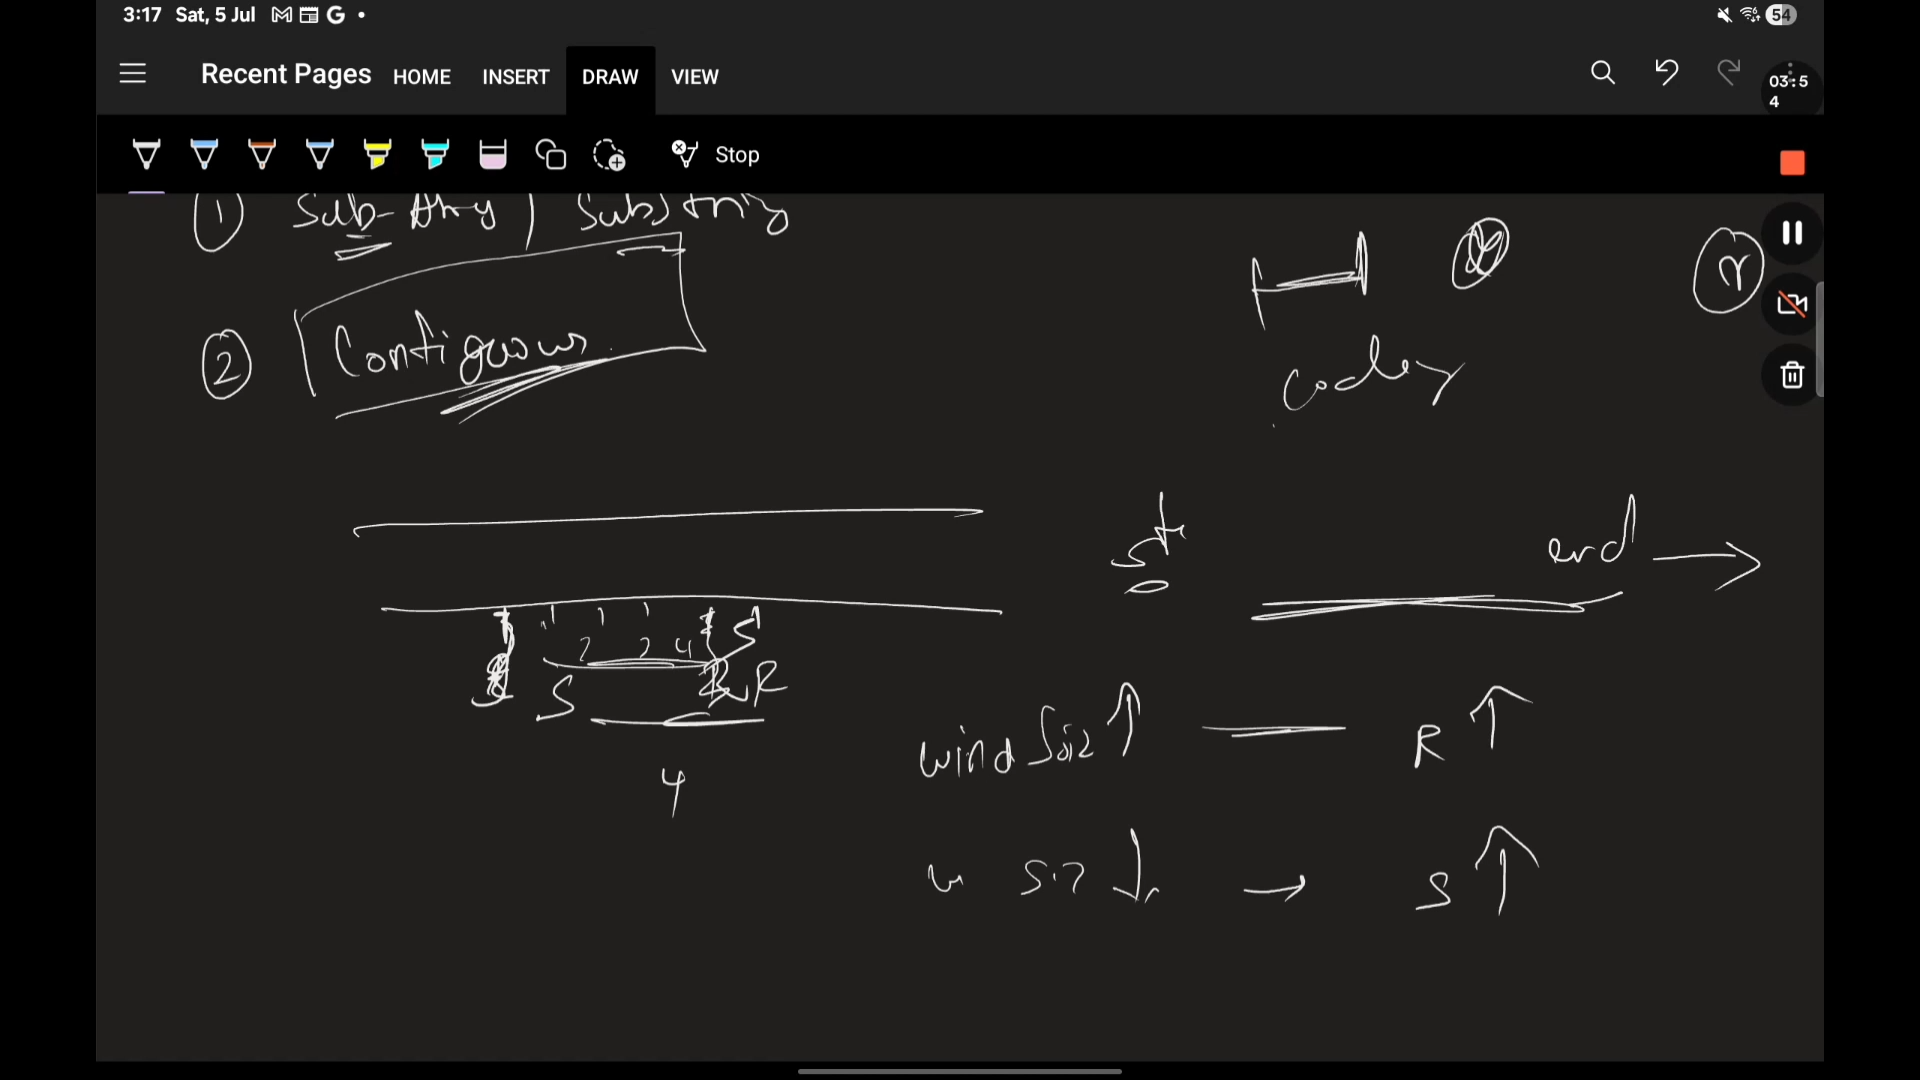 3:17 Sat, 5 Jul
54
Recent Pages HOME INSERT DRAW VIEW
03:5
4
Stop
1 Sub-Array / Substring
2 Contiguous
r
st end
1 2 3 4 5
S R
4
wind Siz ↑ R ↑
w siz ↓ → S ↑